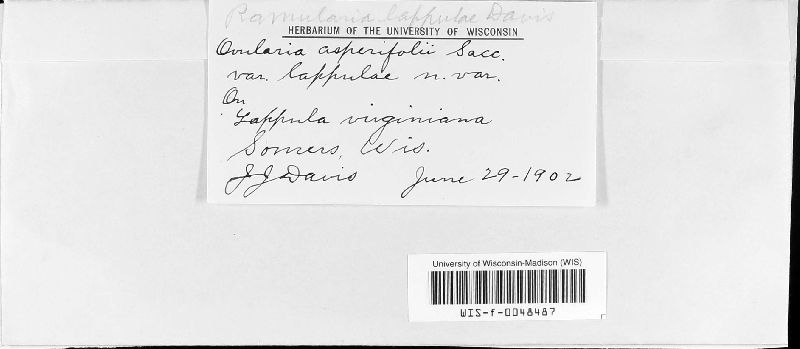 Ramularia lappulae Davis
HERBARIUM OF THE UNIVERSITY OF WISCONSIN
Ovularia asperifolii Sacc.
var. lappulae n. var.
On
Lappula virginiana
Somers, Wis.
J J Davis June 29-1902
University of Wisconsin-Madison (WIS)
WIS-f-0048487